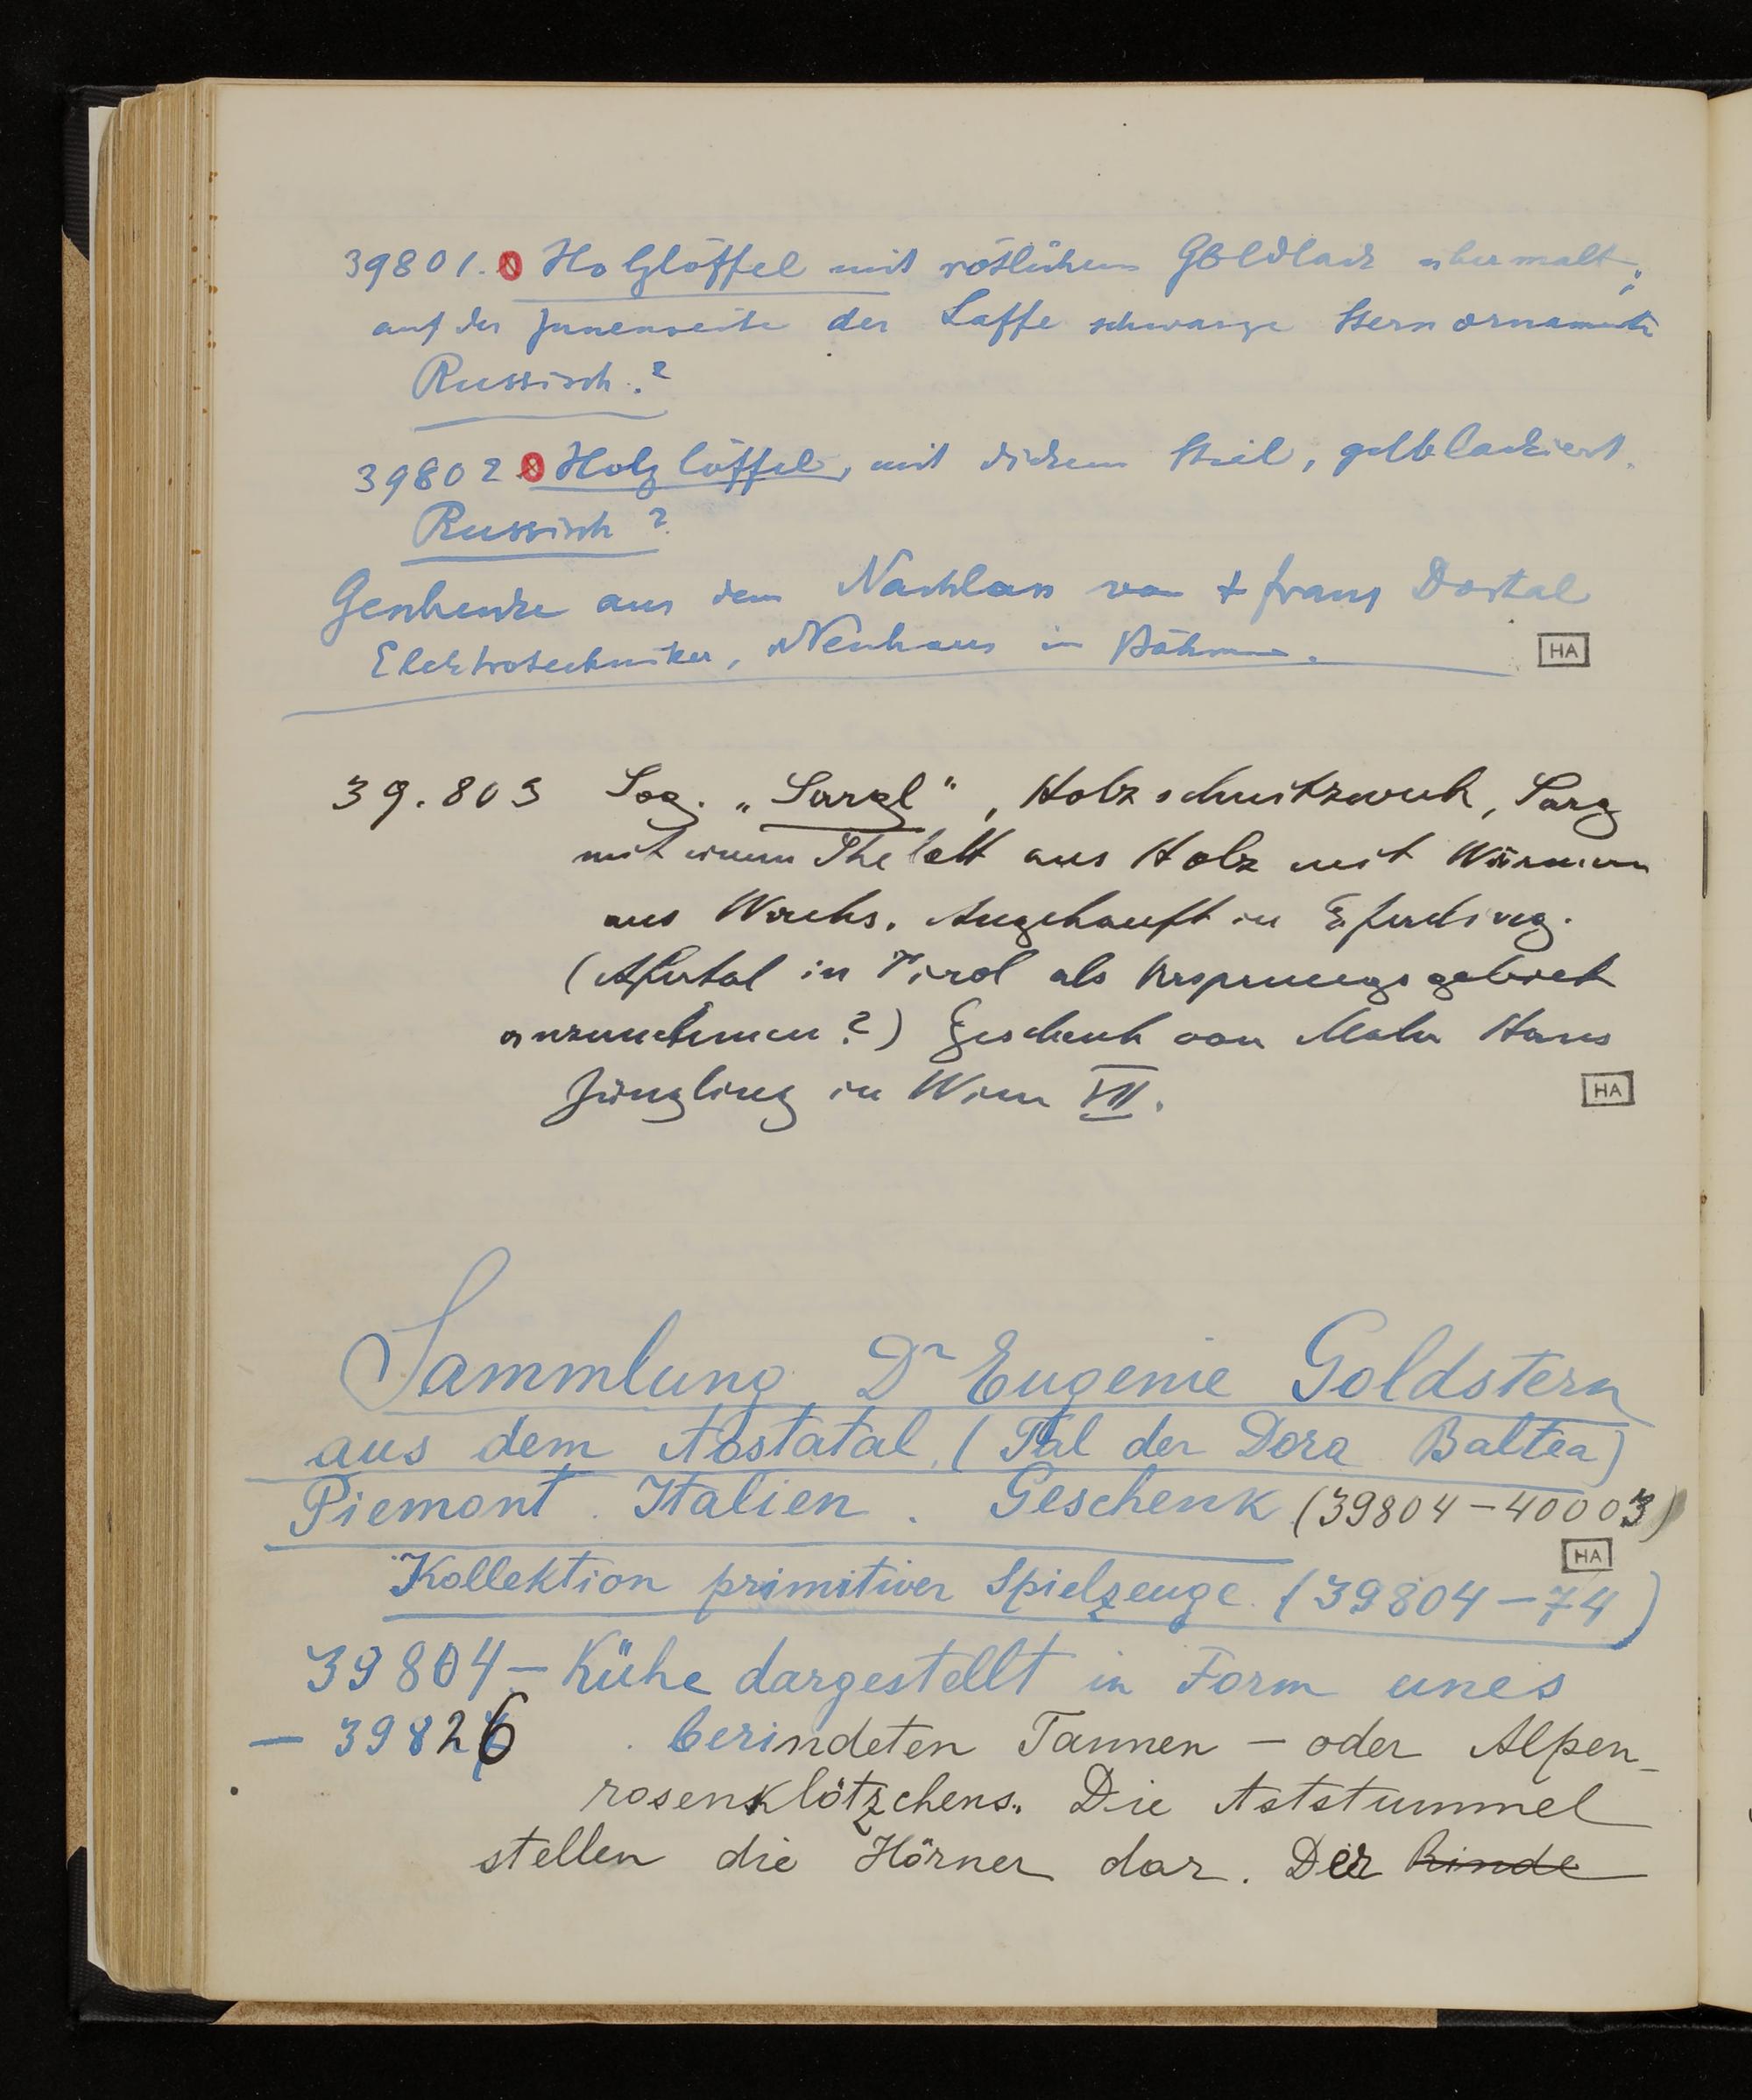 39801. Holzlöffel mit rötlichem Goldlack übermalt;
auf der Innenseite der Laffe schwarze Sternornamente
Russisch?
39802 Holzlöffel, mit dickem Stiel, gelblackiert.
Russisch?
Geschenke aus dem Nachlass von † Franz Dostal
Elektrotechniker, Neuhaus in Böhmen.
HA
39.803 Sog. „Sargl", Holzschnitzwerk, Sarg
mit einem Skelett aus Holz mit Würmern
aus Wachs. Angekauft in Eferding.
(Ahrntal in Tirol als Ursprungsgebiet
anzunehmen?) Geschenk von Maler Hans
Jüngling in Wien VII.
HA
Sammlung Dr Eugenie Goldstern
aus dem Aostatal (Tal der Dora Baltea)
Piemont. Italien. Geschenk (39804–40003)
HA
Kollektion primitiver Spielzeuge (39804–74)
39804– Kühe dargestellt in Form eines
– 39826 berindeten Tannen – oder Alpen-
rosenklötzchens. Die Aststummel
stellen die Hörner dar. Der Rinde